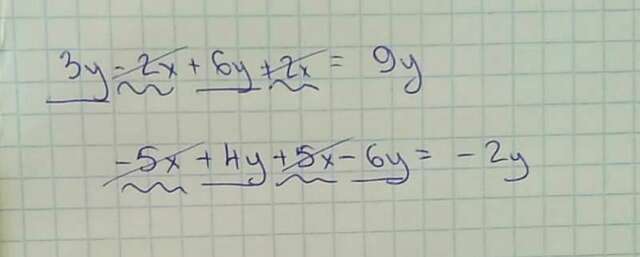 3y - 2x + 6y + 2x = 9y
-5x + 4y + 5x - 6y = -2y